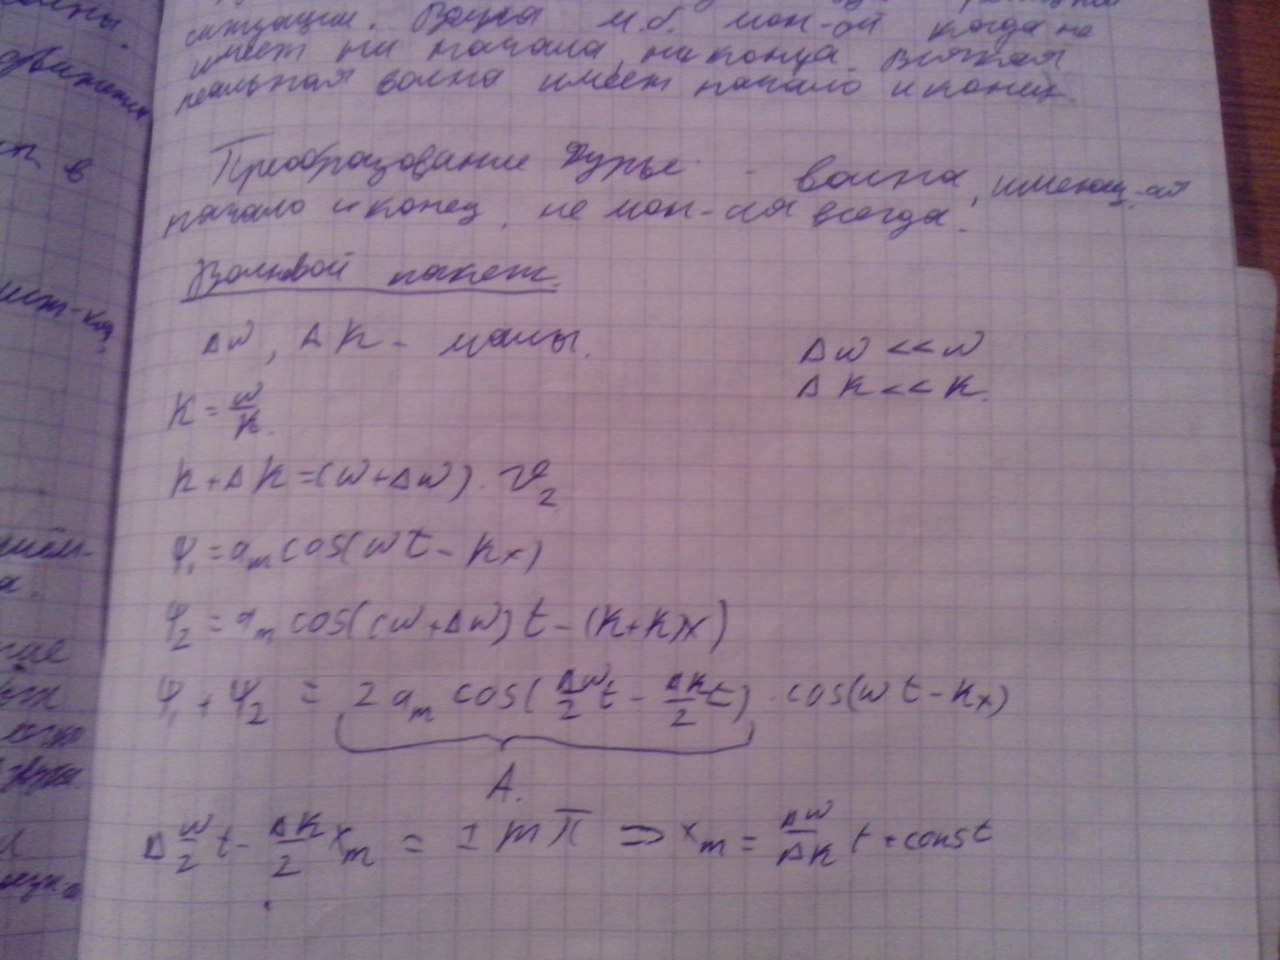 ситуации. Волна м.б. мон-ой когда не
имеет ни начала, ни конца. Всякая
реальная волна имеет начало и конец.
Преобразование Фурье - волна, имеющ-ая
начало и конец, не мон-ая всегда.
Волновой пакет.
Δω, Δk - малы.
Δω << ω
Δk << k.
k = ω/k.
k + Δk = (ω + Δω) · v₂
ψ₁ = aₘ cos(ωt - kx)
ψ₂ = aₘ cos((ω + Δω)t - (k + k)x)
ψ₁ + ψ₂ = 2aₘ cos(Δω/2 t - Δk/2 t) · cos(ωt - kx)
A.
Δω/2 t - Δk/2 xₘ = ± mπ ⇒ xₘ = Δω/Δk t + const
движения
в